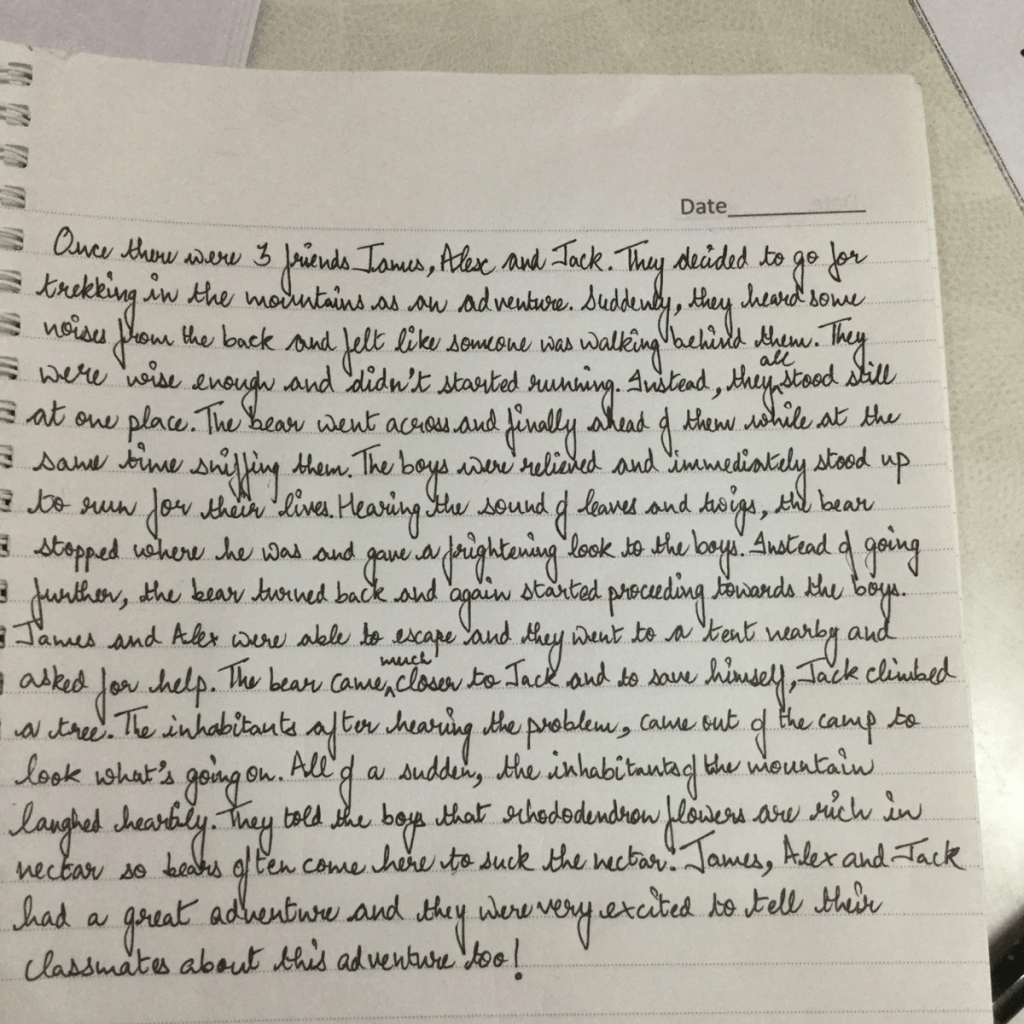 Date
Once there were 3 friends James, Alex and Jack. They decided to go for
trekking in the mountains as an adventure. Suddenly, they heard some
noises from the back and felt like someone was walking behind them. They
were wise enough and didn't started running. Instead, they all stood still
at one place. The bear went across and finally ahead of them while at the
same time sniffing them. The boys were relieved and immediately stood up
to run for their lives. Hearing the sound of leaves and twigs, the bear
stopped where he was and gave a frightening look to the boys. Instead of going
further, the bear turned back and again started proceeding towards the boys.
James and Alex were able to escape and they went to a tent nearby and
asked for help. The bear came much closer to Jack and to save himself, Jack climbed
a tree. The inhabitants after hearing the problem, came out of the camp to
look what's going on. All of a sudden, the inhabitants of the mountain
laughed heartily. They told the boys that rhododendron flowers are rich in
nectar so bears often come here to suck the nectar! James, Alex and Jack
had a great adventure and they were very excited to tell their
classmates about this adventure too!